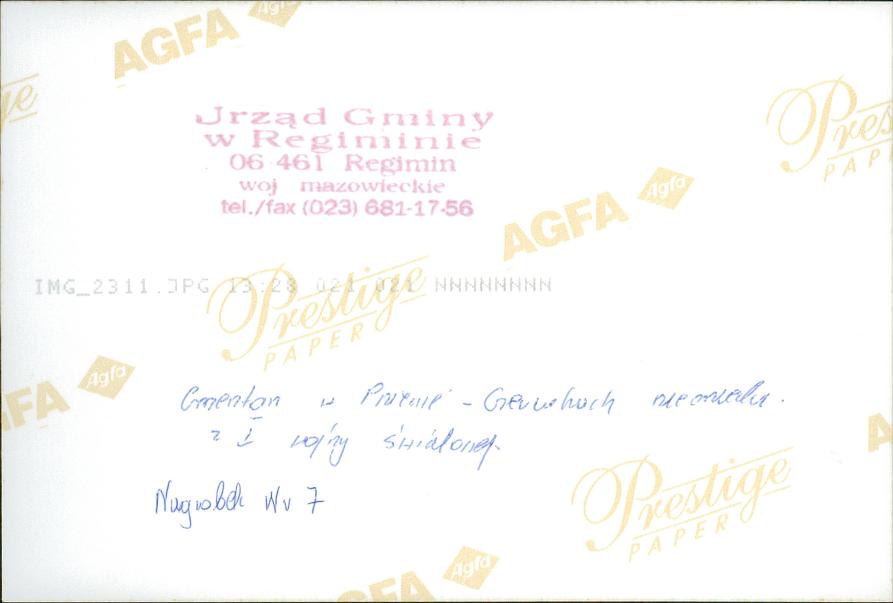 AGFA Agfa
Prestige
Jrząd Gminy
w Regiminie
06 461 Regimin
woj mazowieckie
tel./fax (023) 681-17-56
Prestige
PAPER
AGFA Agfa
IMG_2311.JPG 13:28 021 021 NNNNNNNN
Prestige
PAPER
AGFA Agfa
Cmentarz w
z I wojny światowej.
Nagrobek Nr 7
Prestige
PAPER
AGFA Agfa